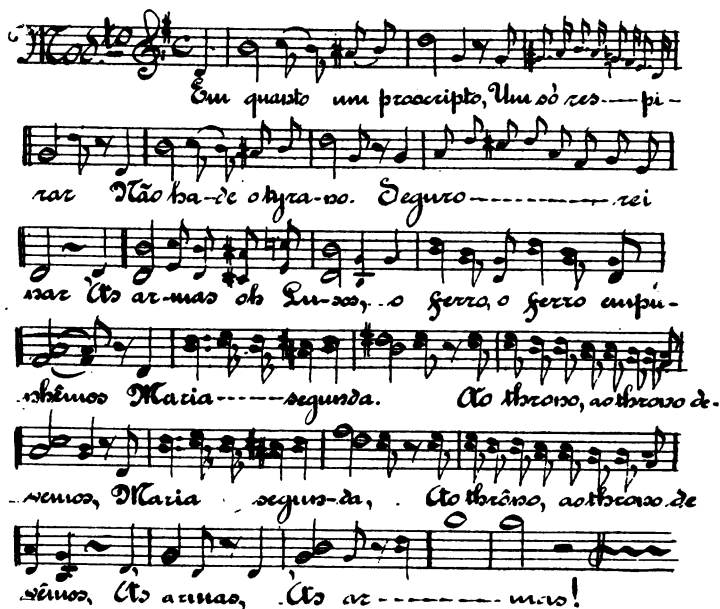 Em quanto um proscripto, Um só res----pi-
rar Não ha-de o tyra-no. Seguro---------- rei
nar Ás ar-mas oh Lu-sos, o ferro, o ferro empu-
nhêmos Maria-----segunda. Ao throno, ao throno de-
vemos, Maria segun-da, Ao thrôno, ao throno de
vêmos, Ás armas, Ás ar--------mas!